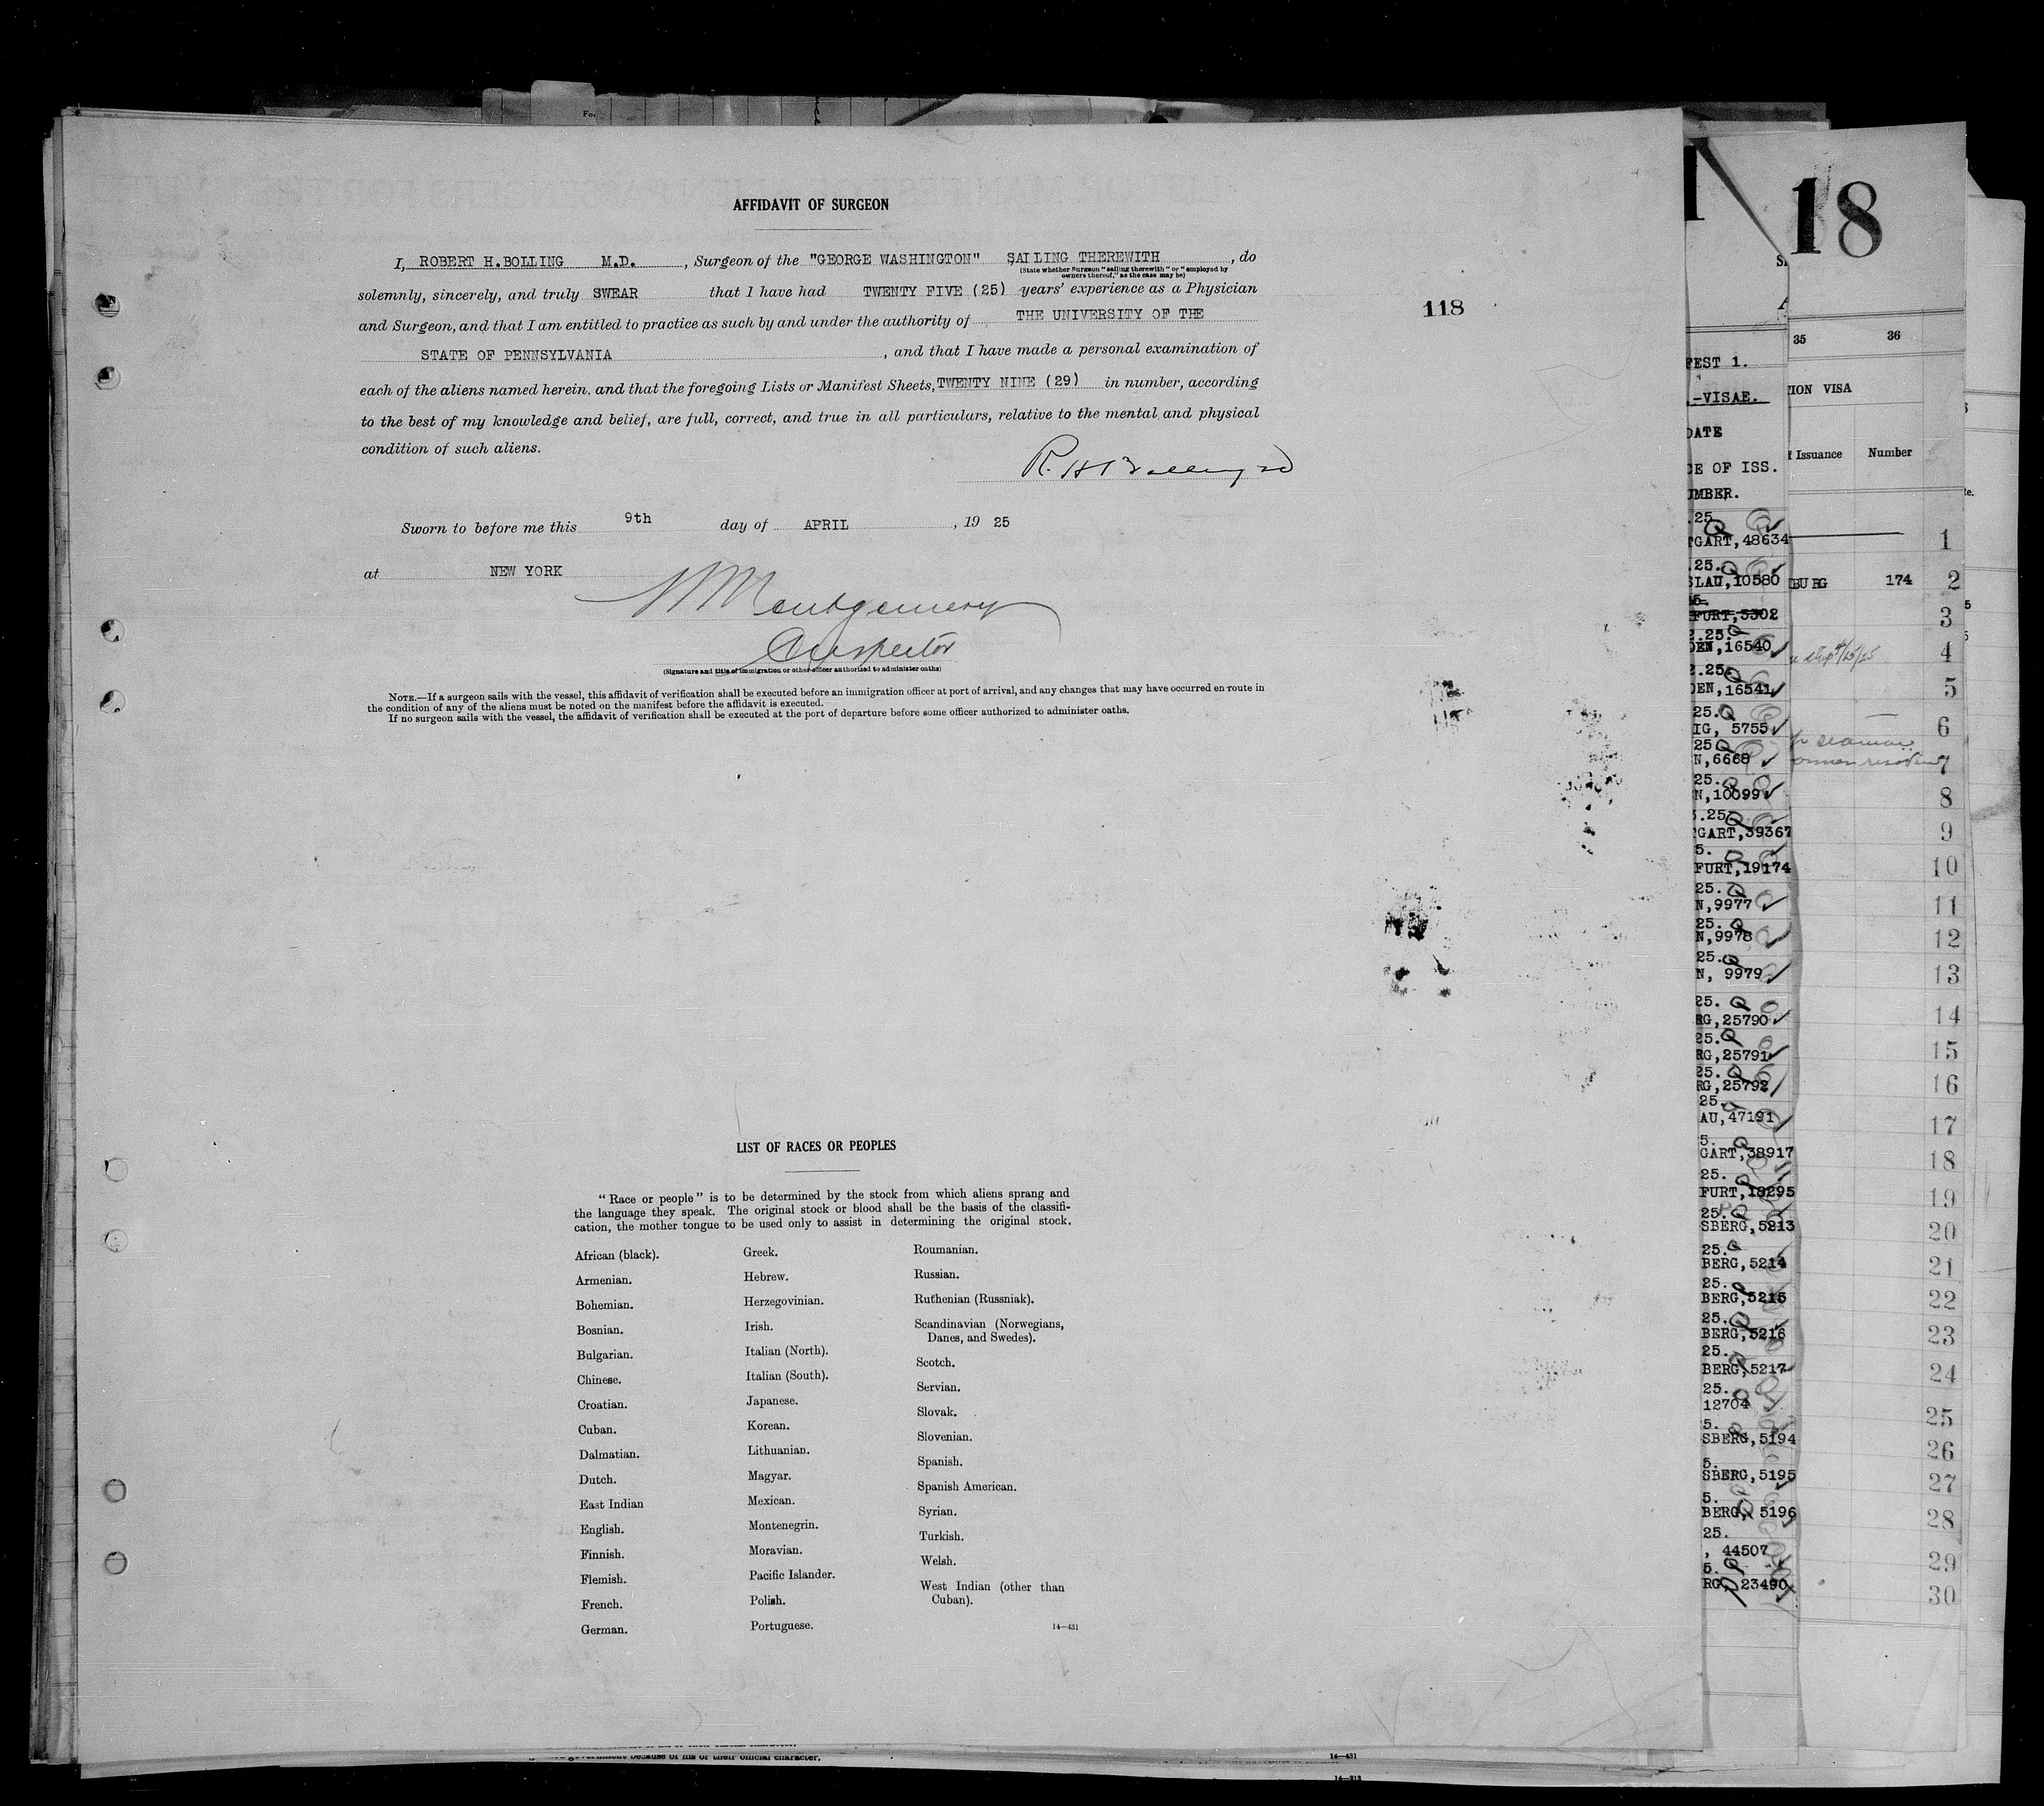 AFFIDAVIT OF SURGEON
I, ROBERT H.BOLLING M.D. , Surgeon of the "GEORGE WASHINGTON" SAILING THEREWITH , do
(State whether Surgeon "sailing therewith" or "employed by
owners thereof," as the case may be)
solemnly, sincerely, and truly SWEAR that I have had TWENTY FIVE (25) years' experience as a Physician
and Surgeon, and that I am entitled to practice as such by and under the authority of THE UNIVERSITY OF THE
STATE OF PENNSYLVANIA , and that I have made a personal examination of
each of the aliens named herein. and that the foregoing Lists or Manifest Sheets, TWENTY NINE (29) in number, according
to the best of my knowledge and belief, are full, correct, and true in all particulars, relative to the mental and physical
condition of such aliens.
R. H Bolling MD
Sworn to before me this 9th day of APRIL , 19 25
at NEW YORK
Montgomery
Inspector
(Signature and title of immigration or other officer authorized to administer oaths)
NOTE.—If a surgeon sails with the vessel, this affidavit of verification shall be executed before an immigration officer at port of arrival, and any changes that may have occurred en route in
the condition of any of the aliens must be noted on the manifest before the affidavit is executed.
If no surgeon sails with the vessel, the affidavit of verification shall be executed at the port of departure before some officer authorized to administer oaths.
118
LIST OF RACES OR PEOPLES
"Race or people" is to be determined by the stock from which aliens sprang and
the language they speak. The original stock or blood shall be the basis of the classifi-
cation, the mother tongue to be used only to assist in determining the original stock.
African (black).
Armenian.
Bohemian.
Bosnian.
Bulgarian.
Chinese.
Croatian.
Cuban.
Dalmatian.
Dutch.
East Indian
English.
Finnish.
Flemish.
French.
German.
Greek.
Hebrew.
Herzegovinian.
Irish.
Italian (North).
Italian (South).
Japanese.
Korean.
Lithuanian.
Magyar.
Mexican.
Montenegrin.
Moravian.
Pacific Islander.
Polish.
Portuguese.
Roumanian.
Russian.
Ruthenian (Russniak).
Scandinavian (Norwegians,
Danes, and Swedes).
Scotch.
Servian.
Slovak.
Slovenian.
Spanish.
Spanish American.
Syrian.
Turkish.
Welsh.
West Indian (other than
Cuban).
14—431
government because of his or their official character.
14—431
14—313
FEST 1.
-VISAE.
DATE
CE OF ISS.
UMBER.
.25
TGART,48634
.25.
SLAU,10580
FURT,3302
2.25.
DEN,16540
2.25.
DEN,16541
25.
IG, 5755
25
N,6668
25.
N,10099
3.25
TGART,39367
5.
FURT,19174
25.
N,9977
25.
N,9978
25.
N, 9979
25.
RG,25790
25.
RG,25791
25.
RG,25792
25.
AU,47191
5.
GART,38917
25.
FURT,18295
25.
SBERG,5213
25.
BERG,5214
25.
BERG,5215
25.
BERG,5216
25.
BERG,5217
25.
12704
5.
SBERG,5194
5.
SBERG,5195
5.
BERG, 5196
25.
, 44507
5.
RG, 23490
18
35 36
ION VISA
f Issuance Number
BURG 174
4/15/25
1
2
3
4
5
6
7
8
9
10
11
12
13
14
15
16
17
18
19
20
21
22
23
24
25
26
27
28
29
30